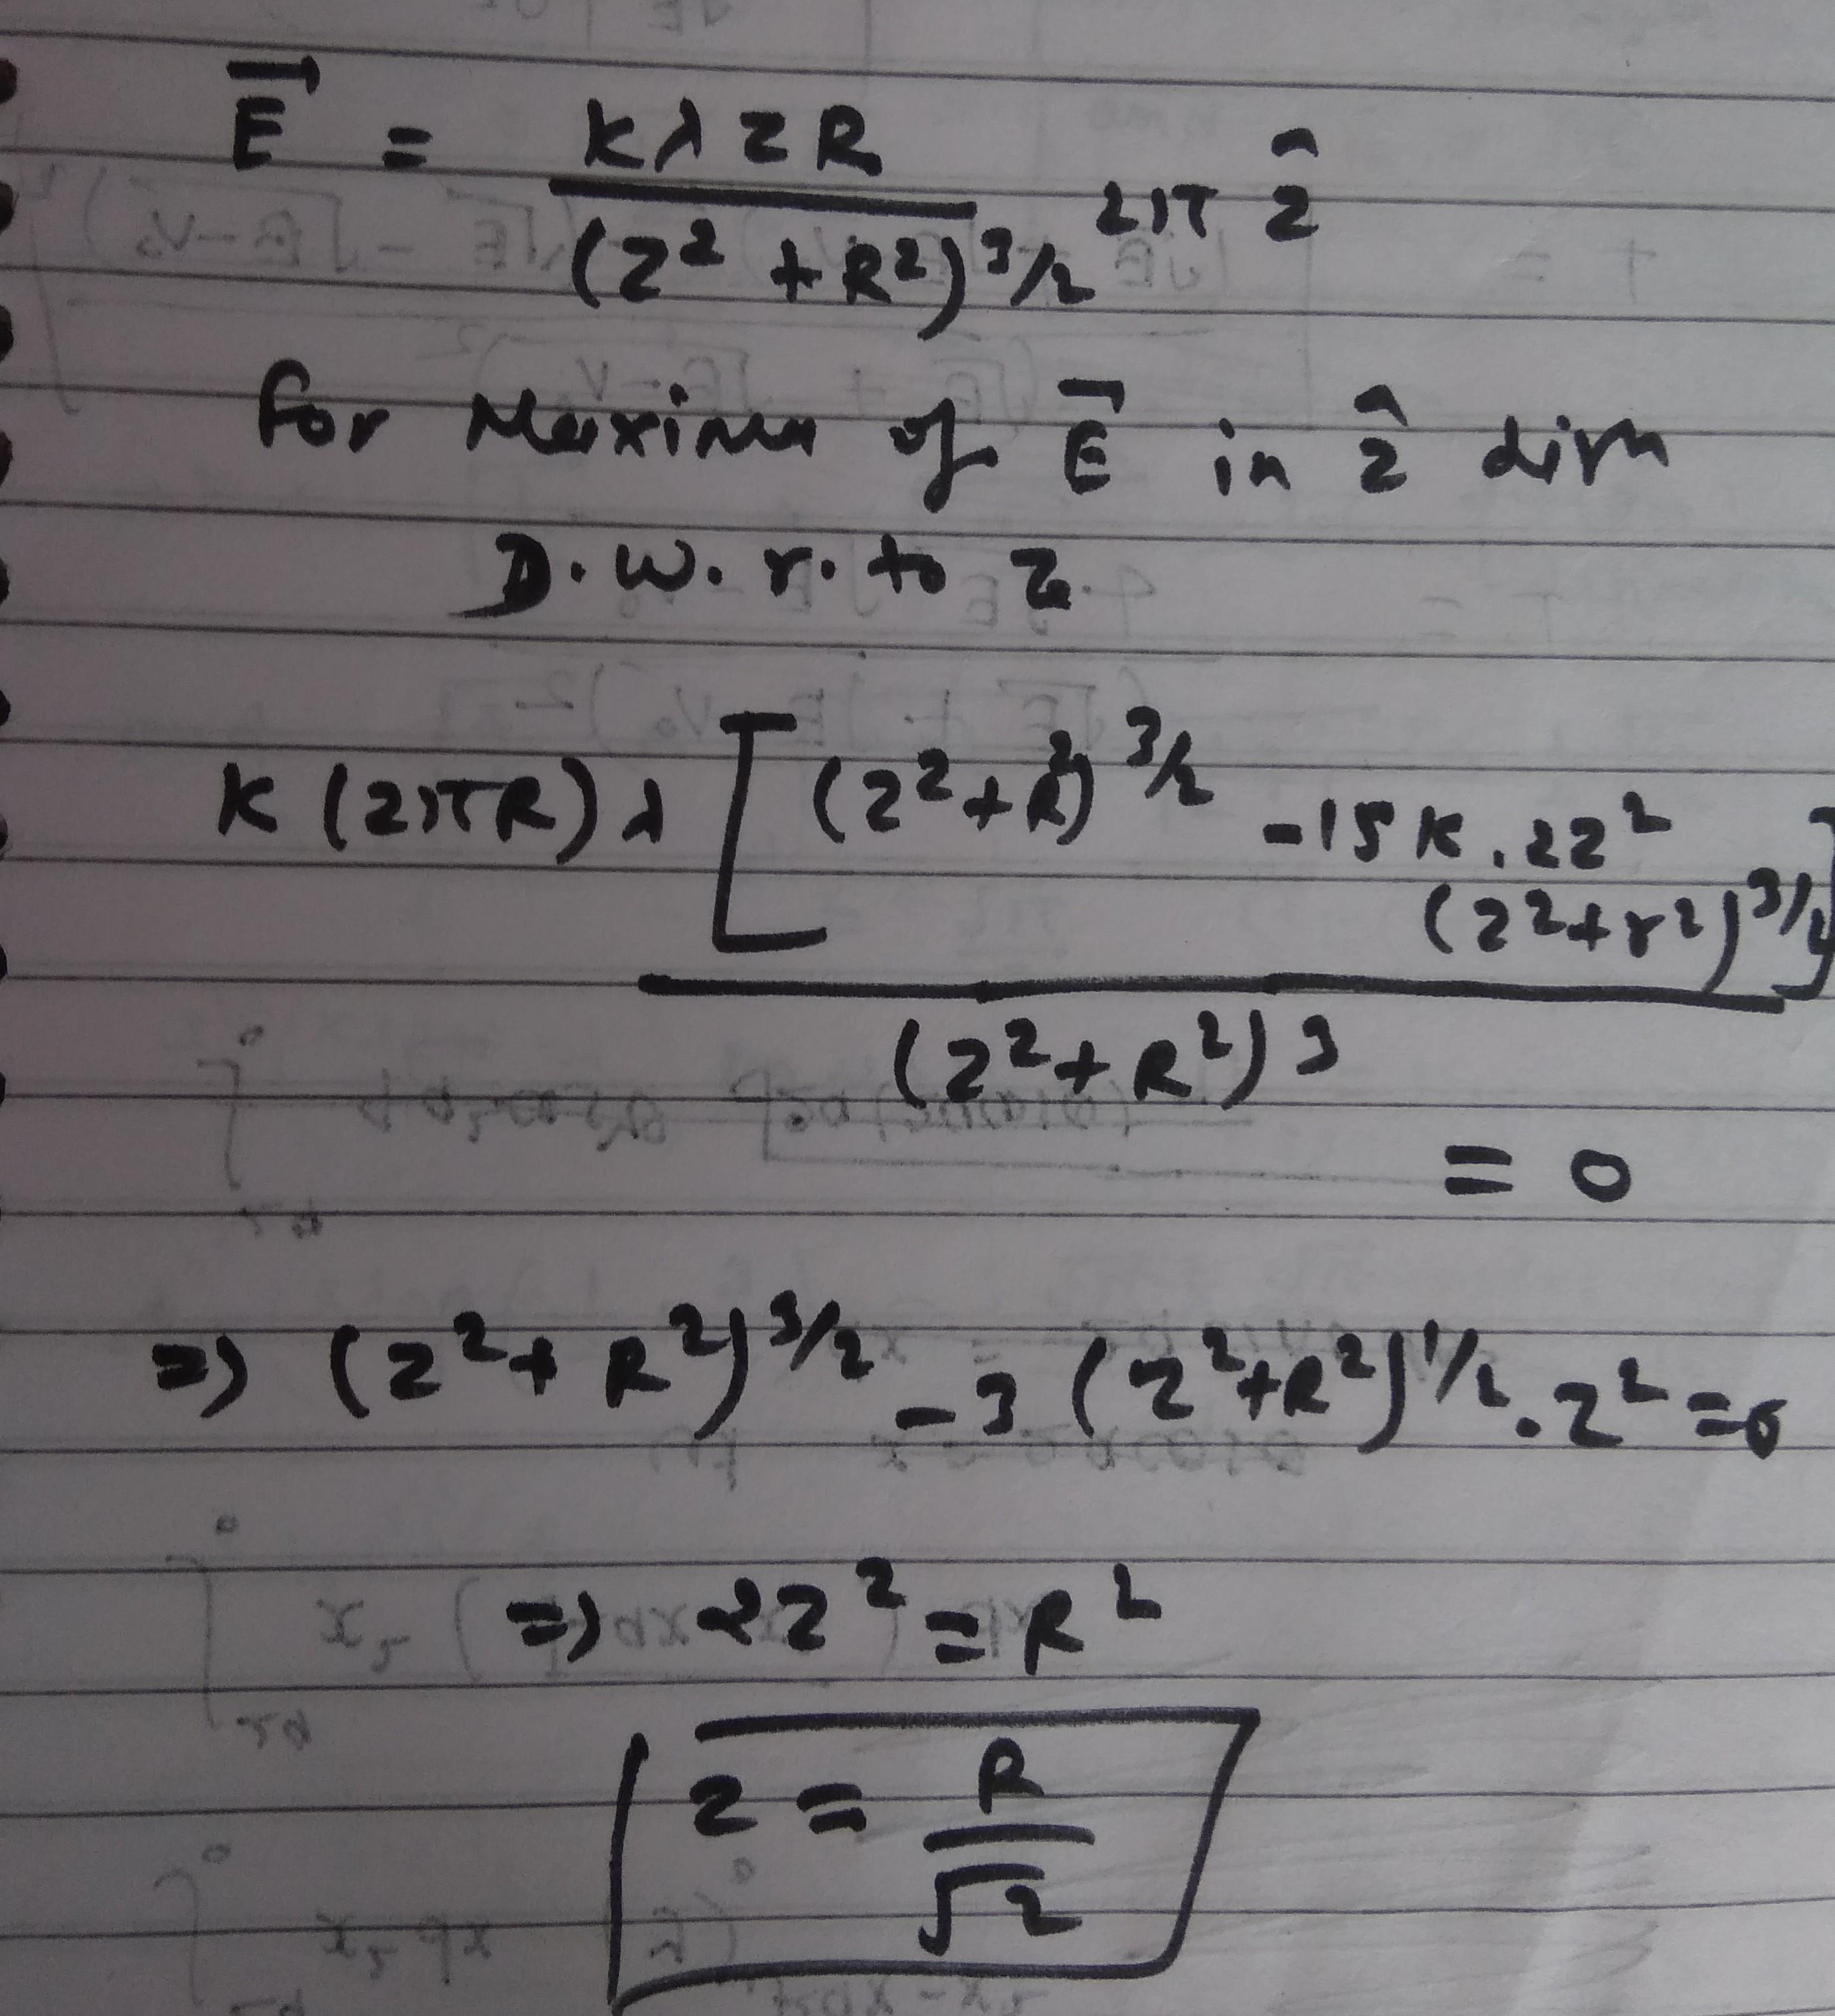 E⃗ = KλZR / (Z² + R²)^3/2 2π ẑ
for Maxima of E⃗ in ẑ dirn
D. W. r. to z
K (2πR) λ [(z²+R²)^3/2 -15K.2z² (z²+r²)^3/2] / (z²+R²)3
= 0
=> (z²+R²)^3/2 -3(z²+R²)^1/2 . z² = 0
=> 2z² = R²
z = R/√2